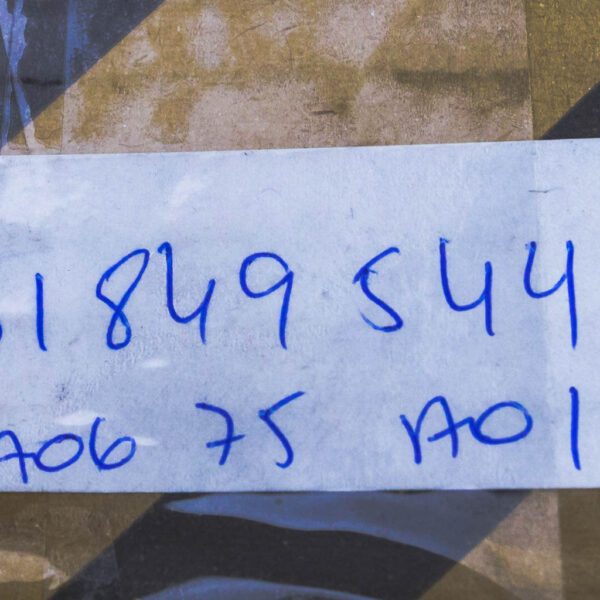 1 849 544
A06 75 A01